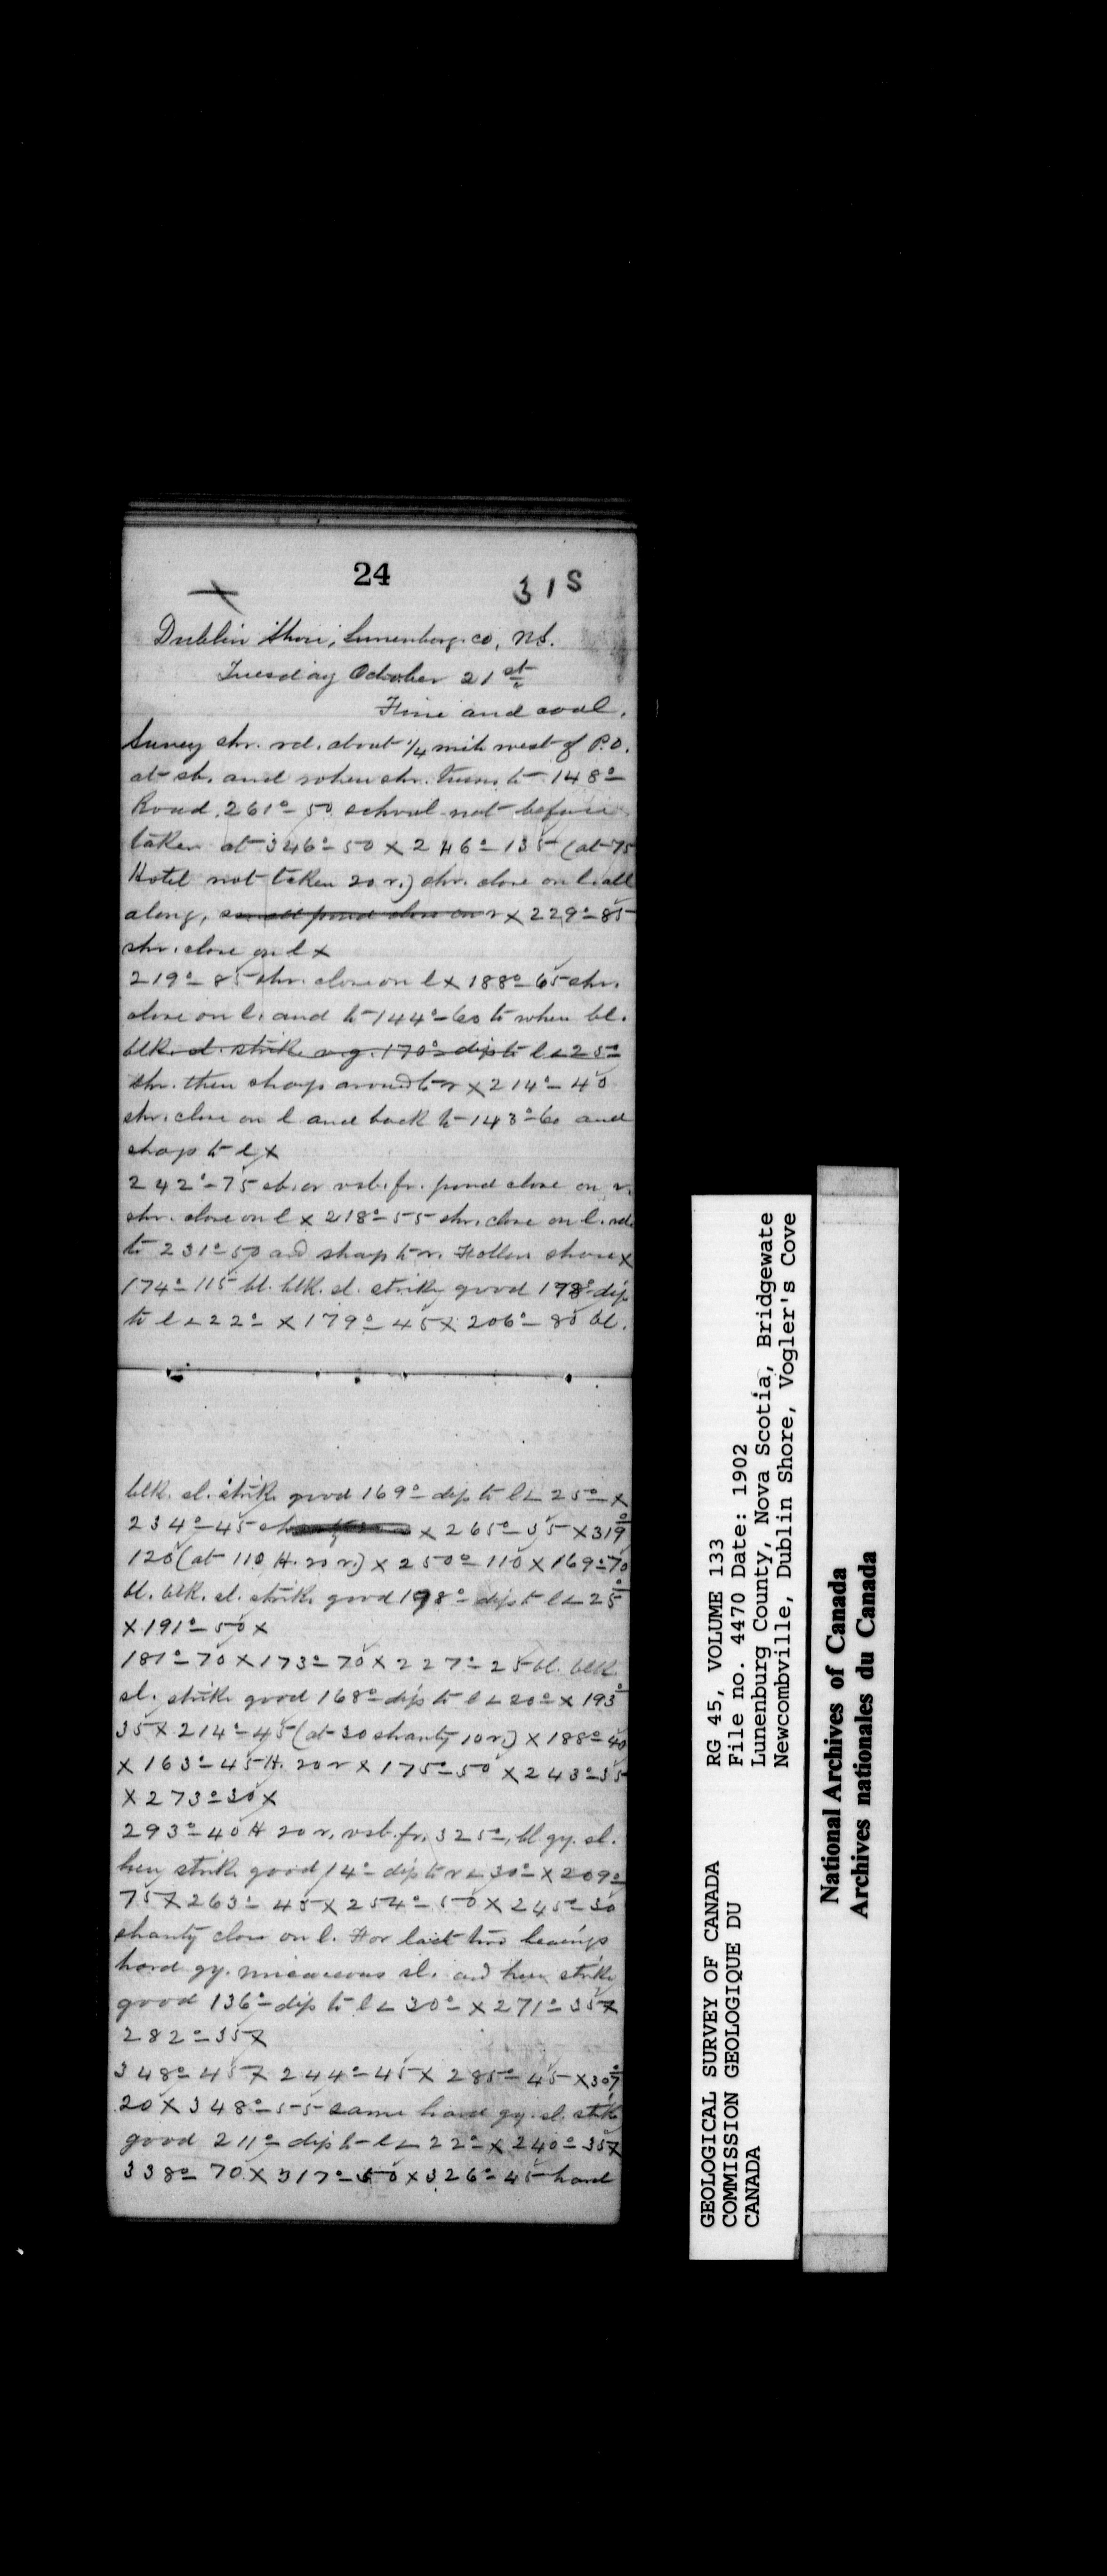 24
31S
Dublin Shore, Lunenburg. co, N.S.
Tuesday October 21st
Fine and cool.
Survey shr. rd. about 1/4 mile west of P.O.
at sh. and when shr. turns to 148°
Road. 261° - 50 school not before
taken at 346° - 50 x 246° - 135 (at 75
Hotel not taken 20 r.) shr. close on l. all
along, small pond close on r x 229° - 85
shr. close on l x
219° - 85 shr. close on l x 188° - 65 shr.
close on l. and to 144° - 60 to when bl.
blk. sl. strike 170° dip to l ∠ 25°
shr. then sharp around to r x 214° - 40
shr. close on l and back to 143° - 60 and
sharp to l x
242° - 75 vsb. fr. pond close on r.
shr. close on l x 218° - 55 shr. close on l. rd.
to 231° - 50 and sharp to r. Follow shore x
174° - 115 bl. blk. sl. strike good 178° dip
to l ∠ 22° x 179° - 45 x 206° - 80 bl.
blk. sl. strike good 169° dip to l ∠ 25° x
234° - 45 x 265° - 35 x 319°
120 (at 110 H. 20 r.) x 250° - 110 x 169° - 70
bl. blk. sl. strike good 198° dip to l ∠ 25°
x 191° - 50 x
181° - 70 x 173° - 70 x 227° - 25 bl. blk
sl. strike good 168° dip to l ∠ 20° x 193°
35 x 214° - 45 (at 30 shanty 10 r.) x 188° - 40
x 163° - 45 H. 20 r x 175° - 50 x 243° - 35
x 273° - 30 x
293° - 40 H 20 r. vsb. fr. 325°, bl. gy. sl.
here strike good 14° dip to r ∠ 30° x 209°
75 x 263° - 45 x 254° - 50 x 245° - 30
shanty close on l. For last two bearings
hard gy. micaceous sl. and here strike
good 136° dip to l ∠ 30° x 271° - 35 x
282° - 35 x
348° - 45 x 244° - 45 x 285° - 45 x 307°
20 x 348° - 55 same hard gy. sl. strike
good 211° dip to l ∠ 22° x 240° - 35 x
338° - 70 x 317° - 50 x 326° - 45 hard
GEOLOGICAL SURVEY OF CANADA
COMMISSION GEOLOGIQUE DU
CANADA
RG 45, VOLUME 133
File no. 4470 Date: 1902
Lunenburg County, Nova Scotia, Bridgewate
Newcombville, Dublin Shore, Vogler's Cove
National Archives of Canada
Archives nationales du Canada